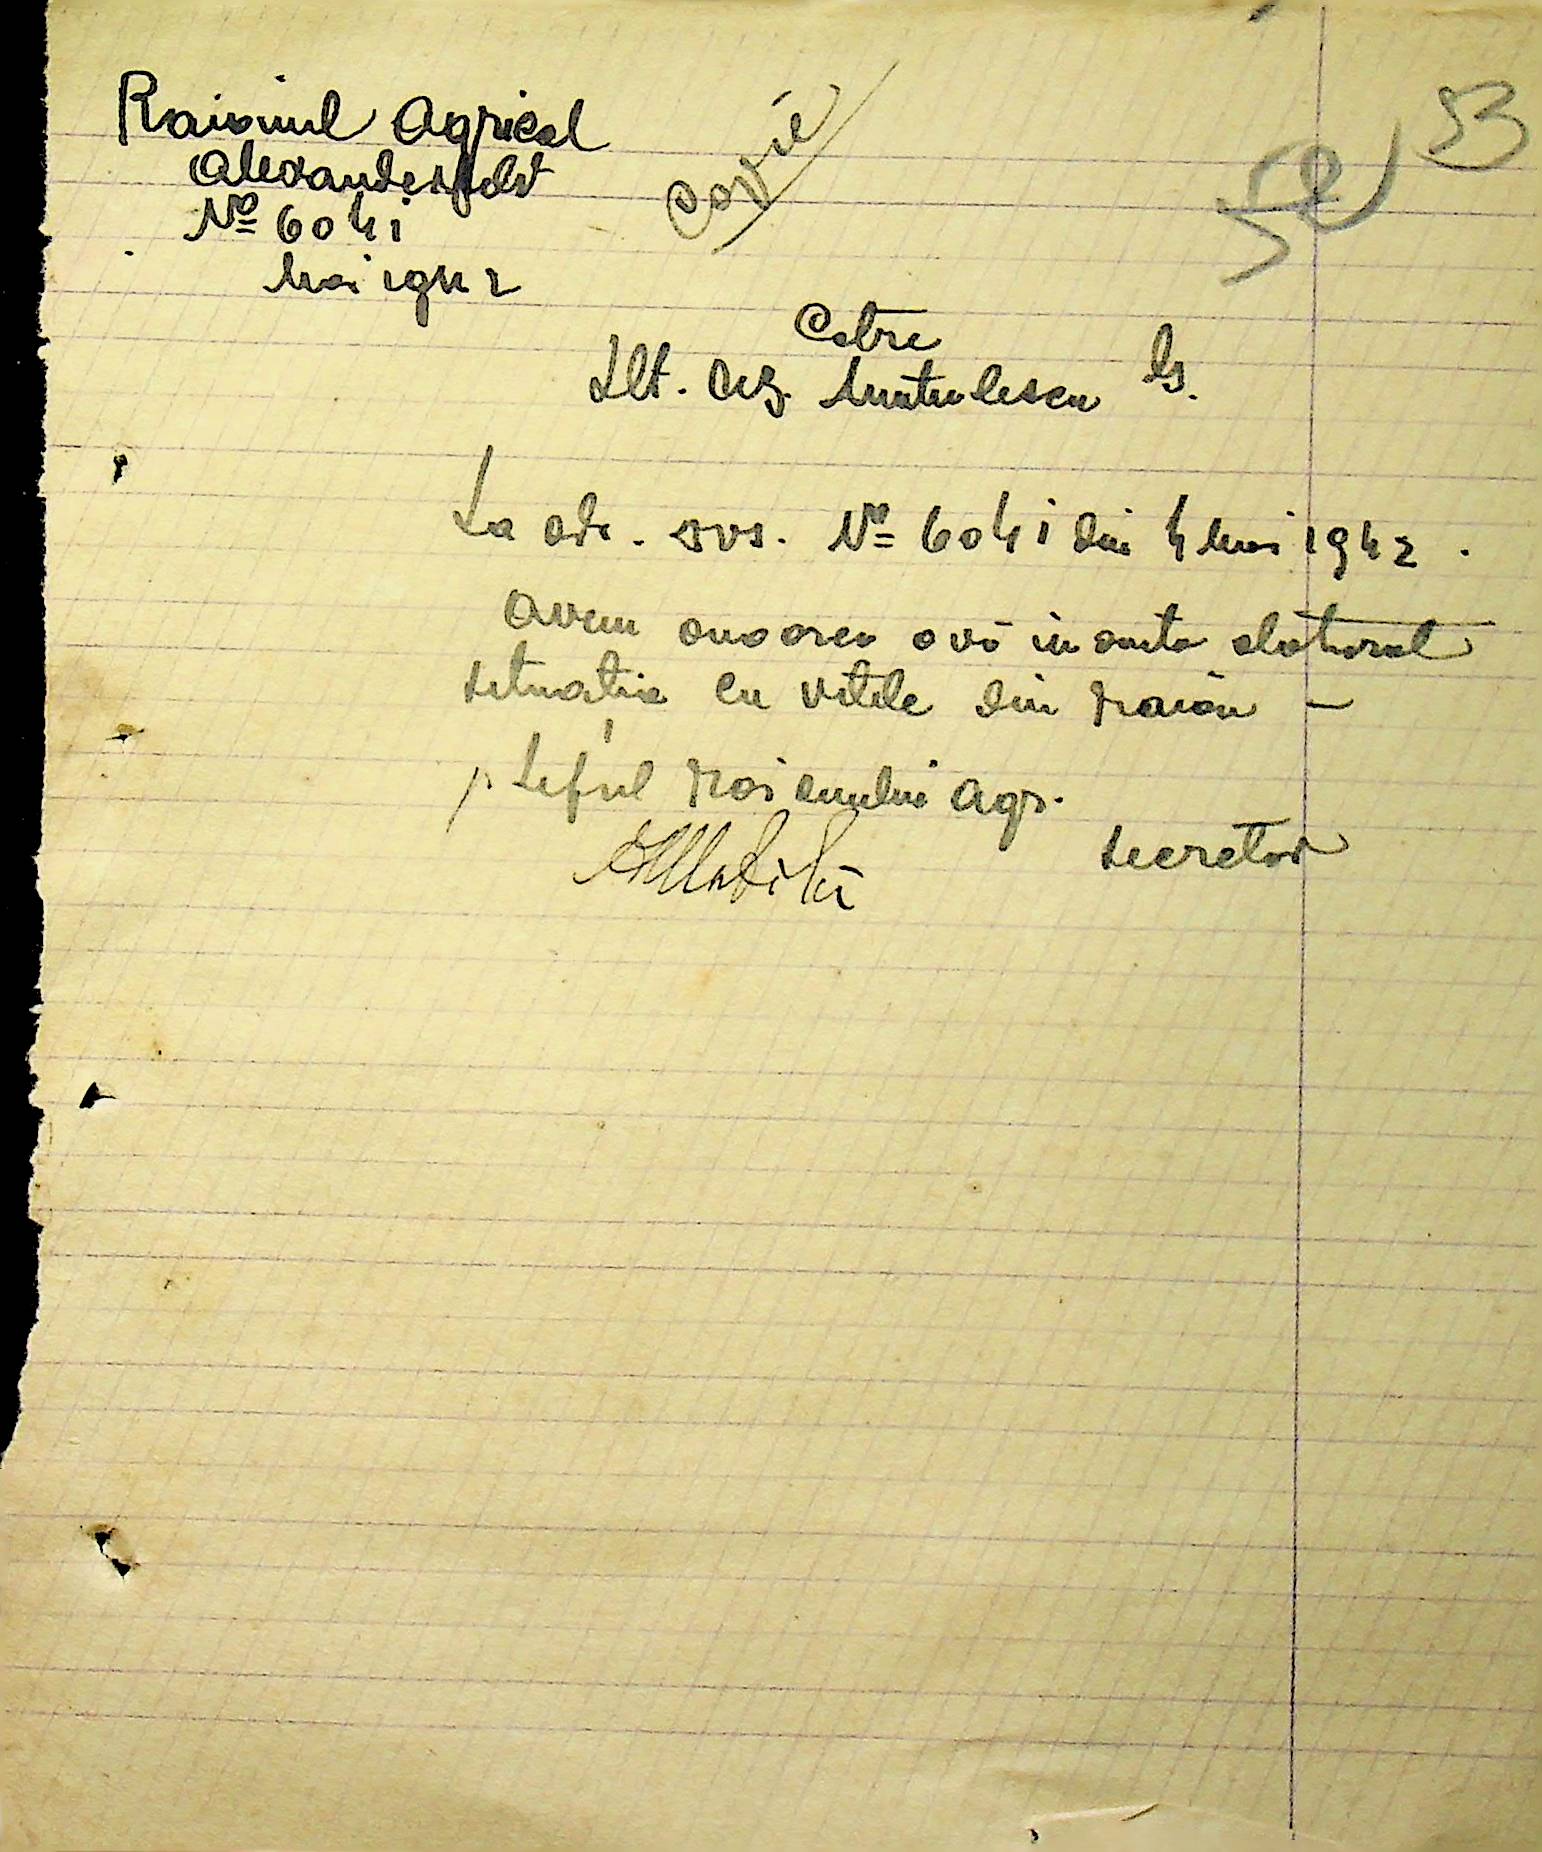 53
Raionul Agricol
Copie
Alexanderfeld
No 6041
Mai 1942
Catre
Slt. Rez. Muntulescu G.
La adr. dvs. No 6041 din 4 Mai 1942.
Avem onoarea a vă inainta alaturat
situatia cu vitele din raion -
p. Seful raionului agr.
Secretar